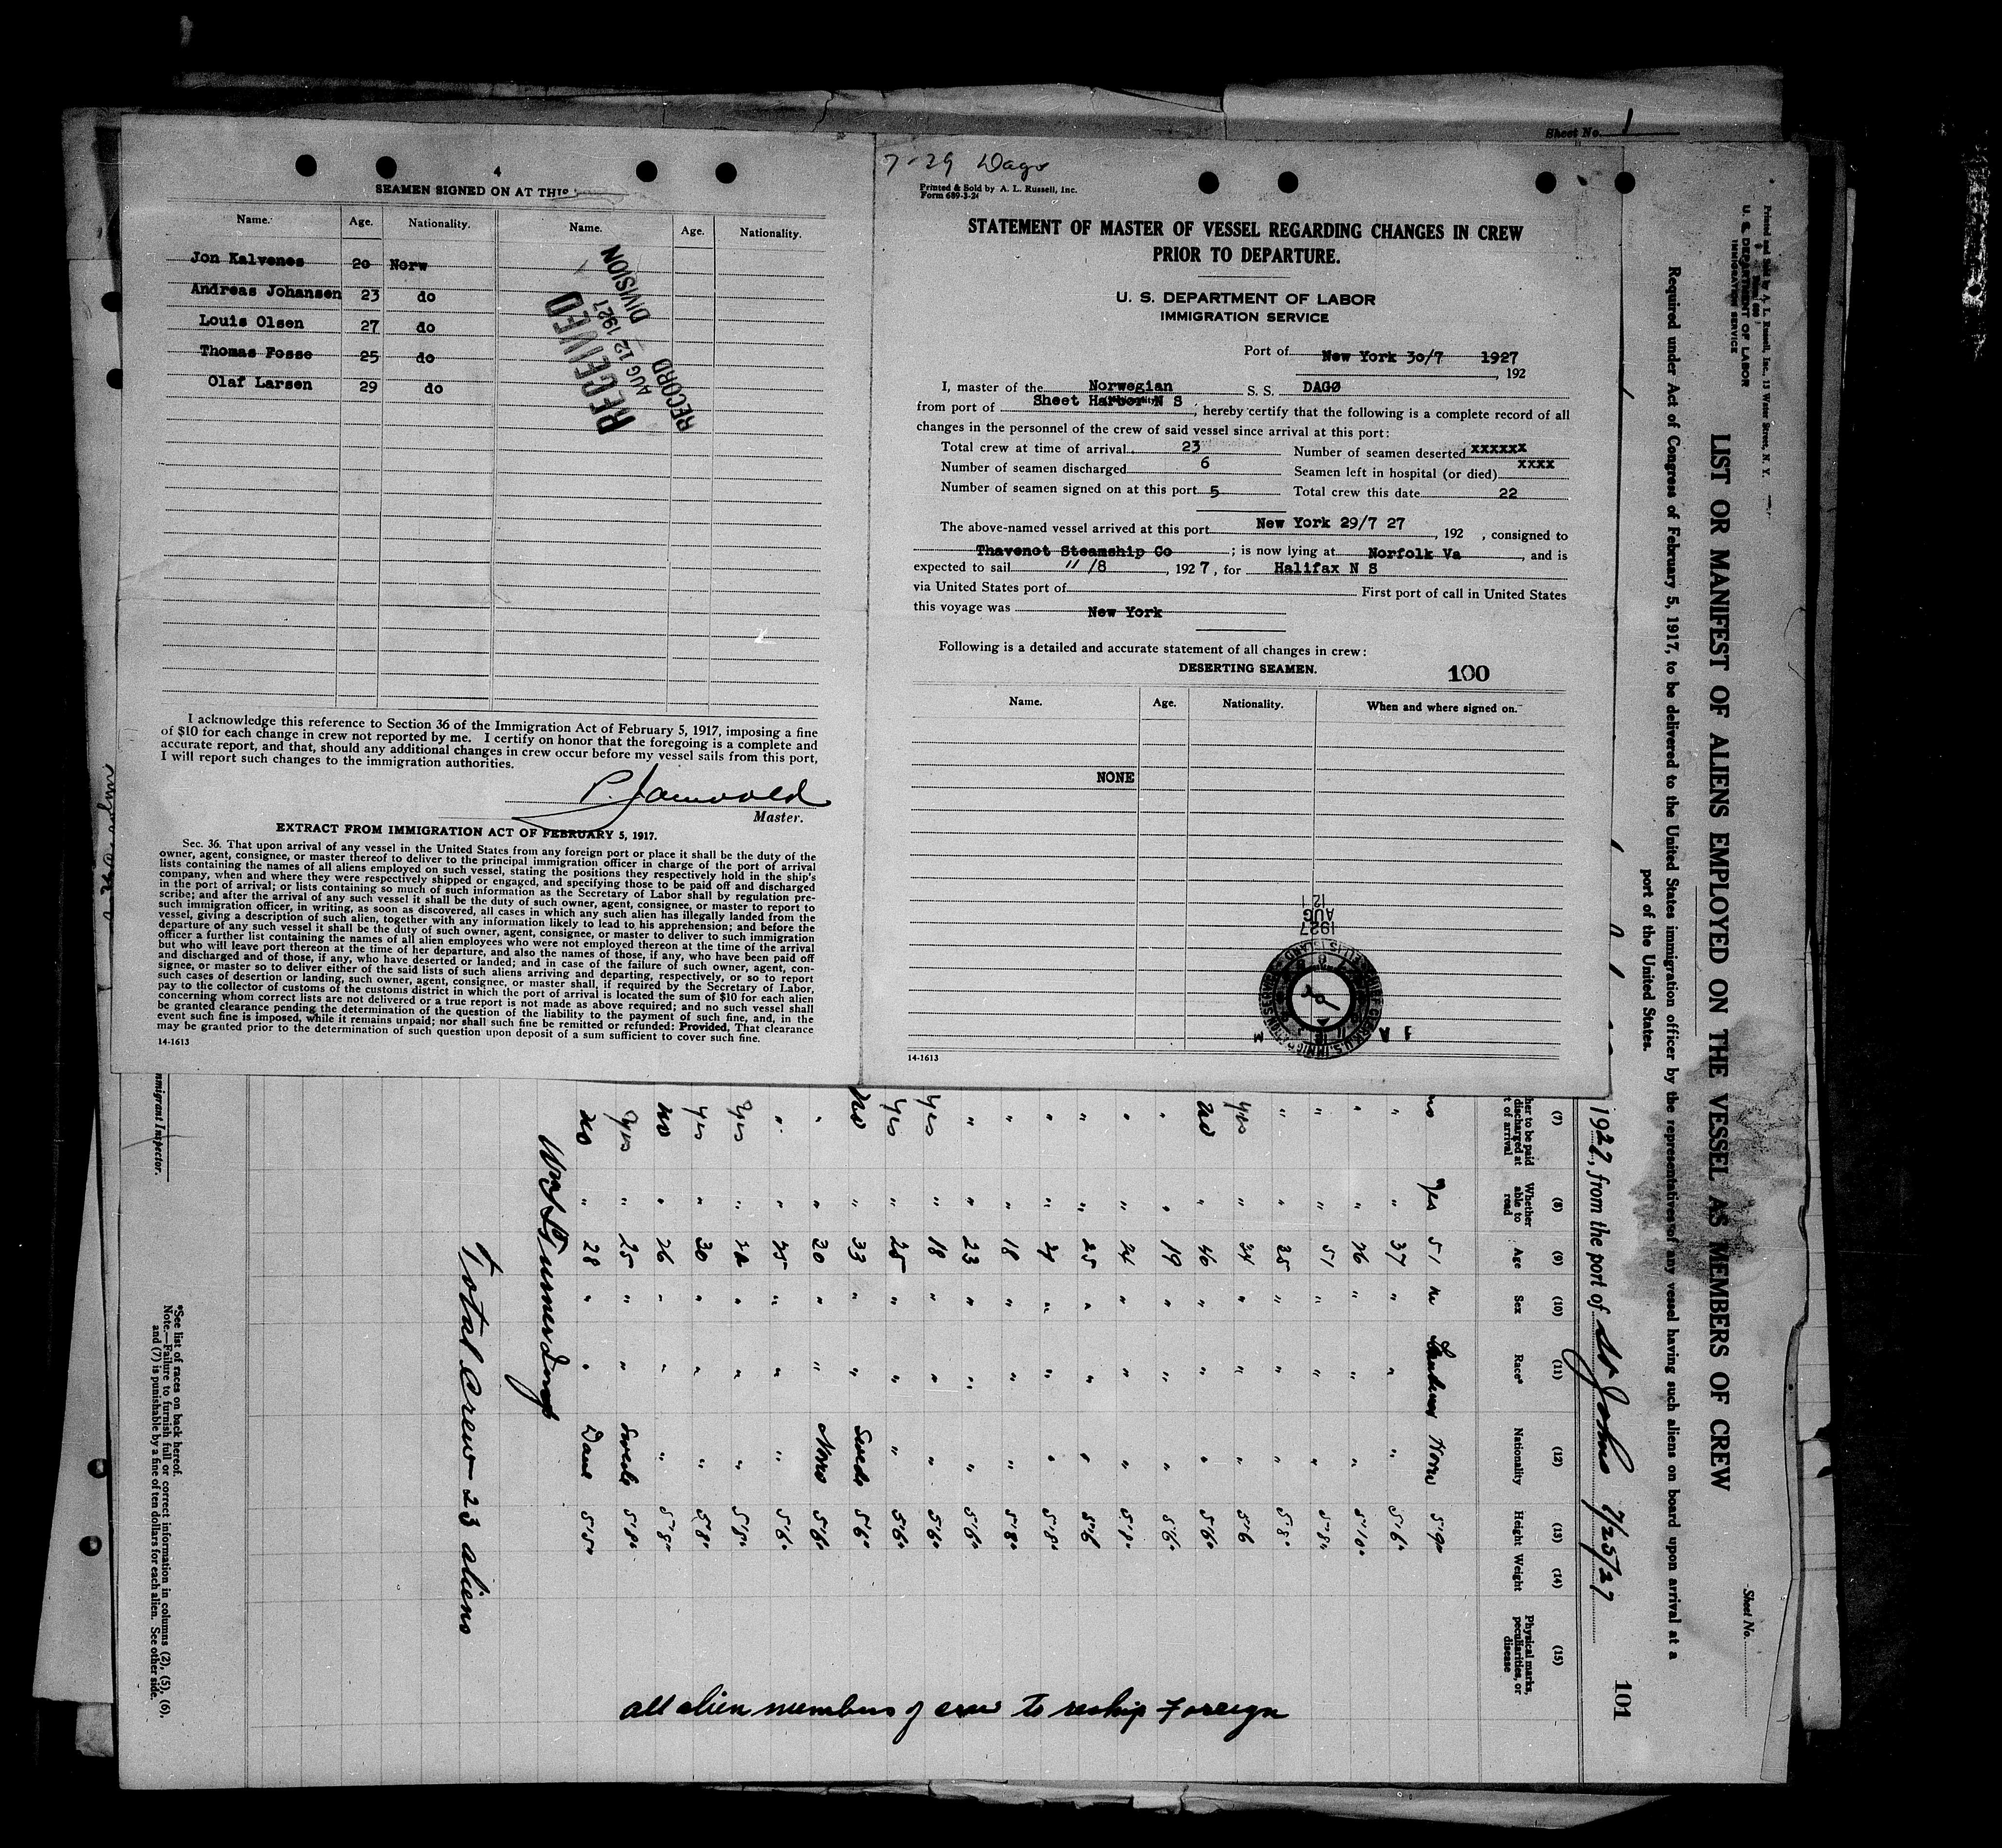 4
SEAMEN SIGNED ON AT THIS
Name. Age. Nationality. Name. Age. Nationality.
Jon Kalvenes 20 Norw
Andreas Johansen 23 do
Louis Olsen 27 do
Thomas Fosse 25 do
Olaf Larsen 29 do
RECEIVED
AUG 12 1927
RECORD DIVISION
I acknowledge this reference to Section 36 of the Immigration Act of February 5, 1917, imposing a fine
of $10 for each change in crew not reported by me. I certify on honor that the foregoing is a complete and
accurate report, and that, should any additional changes in crew occur before my vessel sails from this port,
I will report such changes to the immigration authorities.
Master.
EXTRACT FROM IMMIGRATION ACT OF FEBRUARY 5, 1917.
Sec. 36. That upon arrival of any vessel in the United States from any foreign port or place it shall be the duty of the
owner, agent, consignee, or master thereof to deliver to the principal immigration officer in charge of the port of arrival
lists containing the names of all aliens employed on such vessel, stating the positions they respectively hold in the ship's
company, when and where they were respectively shipped or engaged, and specifying those to be paid off and discharged
in the port of arrival; or lists containing so much of such information as the Secretary of Labor shall by regulation pre-
scribe; and after the arrival of any such vessel it shall be the duty of such owner, agent, consignee, or master to report to
such immigration officer, in writing, as soon as discovered, all cases in which any such alien has illegally landed from the
vessel, giving a description of such alien, together with any information likely to lead to his apprehension; and before the
departure of any such vessel it shall be the duty of such owner, agent, consignee, or master to deliver to such immigration
officer a further list containing the names of all alien employees who were not employed thereon at the time of the arrival
but who will leave port thereon at the time of her departure, and also the names of those, if any, who have been paid off
and discharged and of those, if any, who have deserted or landed; and in case of the failure of such owner, agent, con-
signee, or master so to deliver either of the said lists of such aliens arriving and departing, respectively, or so to report
such cases of desertion or landing, such owner, agent, consignee, or master shall, if required by the Secretary of Labor,
pay to the collector of customs of the customs district in which the port of arrival is located the sum of $10 for each alien
concerning whom correct lists are not delivered or a true report is not made as above required; and no such vessel shall
be granted clearance pending the determination of the question of the liability to the payment of such fine, and, in the
event such fine is imposed, while it remains unpaid; nor shall such fine be remitted or refunded: Provided, That clearance
may be granted prior to the determination of such question upon deposit of a sum sufficient to cover such fine.
14-1613
7-29 Dago
Printed & Sold by A. L. Russell, Inc.
Form 689-3-24
STATEMENT OF MASTER OF VESSEL REGARDING CHANGES IN CREW
PRIOR TO DEPARTURE.
U. S. DEPARTMENT OF LABOR
IMMIGRATION SERVICE
Port of New York 30/7 1927
, 192
I, master of the Norwegian S. S. DAGØ
from port of Sheet Harbor N S, hereby certify that the following is a complete record of all
changes in the personnel of the crew of said vessel since arrival at this port:
Total crew at time of arrival 23 Number of seamen deserted xxxxxx
Number of seamen discharged 6 Seamen left in hospital (or died) xxxx
Number of seamen signed on at this port 5 Total crew this date 22
The above-named vessel arrived at this port New York 29/7 27, 192 , consigned to
Thavenot Steamship Co; is now lying at Norfolk Va, and is
expected to sail " /8, 1927, for Halifax N S
via United States port of First port of call in United States
this voyage was New York
Following is a detailed and accurate statement of all changes in crew:
DESERTING SEAMEN. 100
Name. Age. Nationality. When and where signed on.
NONE
1927
AUG
14-1613
Sheet No. 1
Printed and Sold by A. L. Russell, Inc., 13 Water Street, N. Y.
U. S. DEPARTMENT OF LABOR
IMMIGRATION SERVICE
Sheet No.
LIST OR MANIFEST OF ALIENS EMPLOYED ON THE VESSEL AS MEMBERS OF CREW
Required under Act of Congress of February 5, 1917, to be delivered to the United States immigration officer by the representatives of any vessel having such aliens on board upon arrival at a
port of the United States.
101
1927, from the port of St Johns 7/25/27
(7) (8) (9) (10) (11) (12) (13) (14) (15)
her to be paid discharged at t of arrival Whether able to read Age Sex Race* Nationality Height Weight Physical marks, peculiarities, or disease
no Yes 51 M Norw 5'9"
" " 37 " " " 5'6"
" " 26 " " " 5'10"
" " 51 " " " 5'8"
" " 25 " " " 5'8"
yes " 24 " " " 5'6
no " 46 " " " 5'6"
" " 19 " " " 5'6"
" " 24 " " " 5'8"
" " 25 " " " 5'6
" " 24 " " " 5'8"
" " 18 " " " 5'8"
" " 23 " " " 5'6"
yes " 18 " " " 5'6"
yes " 25 " " " 5'6"
no " 33 " " Swede 5'6"
" " 20 " " Norw 5'8"
" " 25 " " " 5'6"
yes " 22 " " " 5'8"
yes " 30 " " " 5'8"
no " 26 " " " 5'8"
yes " 25 " " Swede 5'8"
no " 28 " " Dane 5'5"
Total Crew - 23 aliens
all alien members of crew to reship Foreign
mmigrant Inspector.
*See list of races on back hereof.
Note.—Failure to furnish full or correct information in columns (2), (5), (6),
and (7) is punishable by a fine of ten dollars for each alien. See other side.